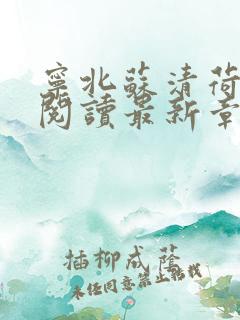 寧北蘇清荷
閱讀最新章
插柳成蔭
未經同意禁止轉載